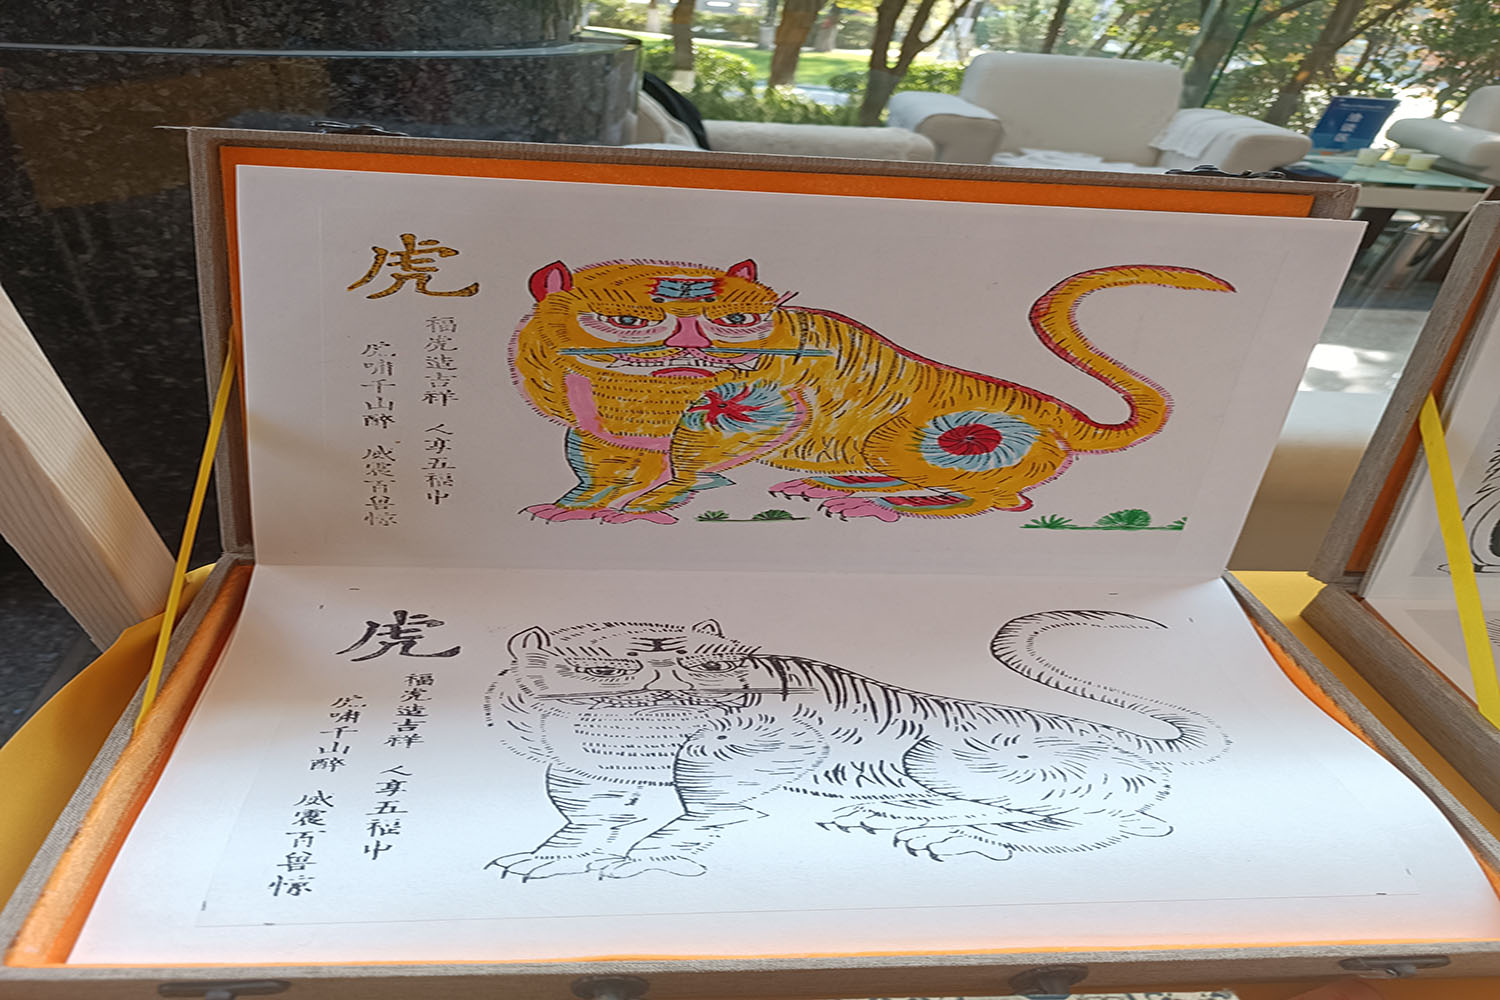 虎
福虎造吉祥 人享五福中
虎啸千山醉 威震百兽惊
王
虎
福虎造吉祥 人享五福中
虎啸千山醉 威震百兽惊
王